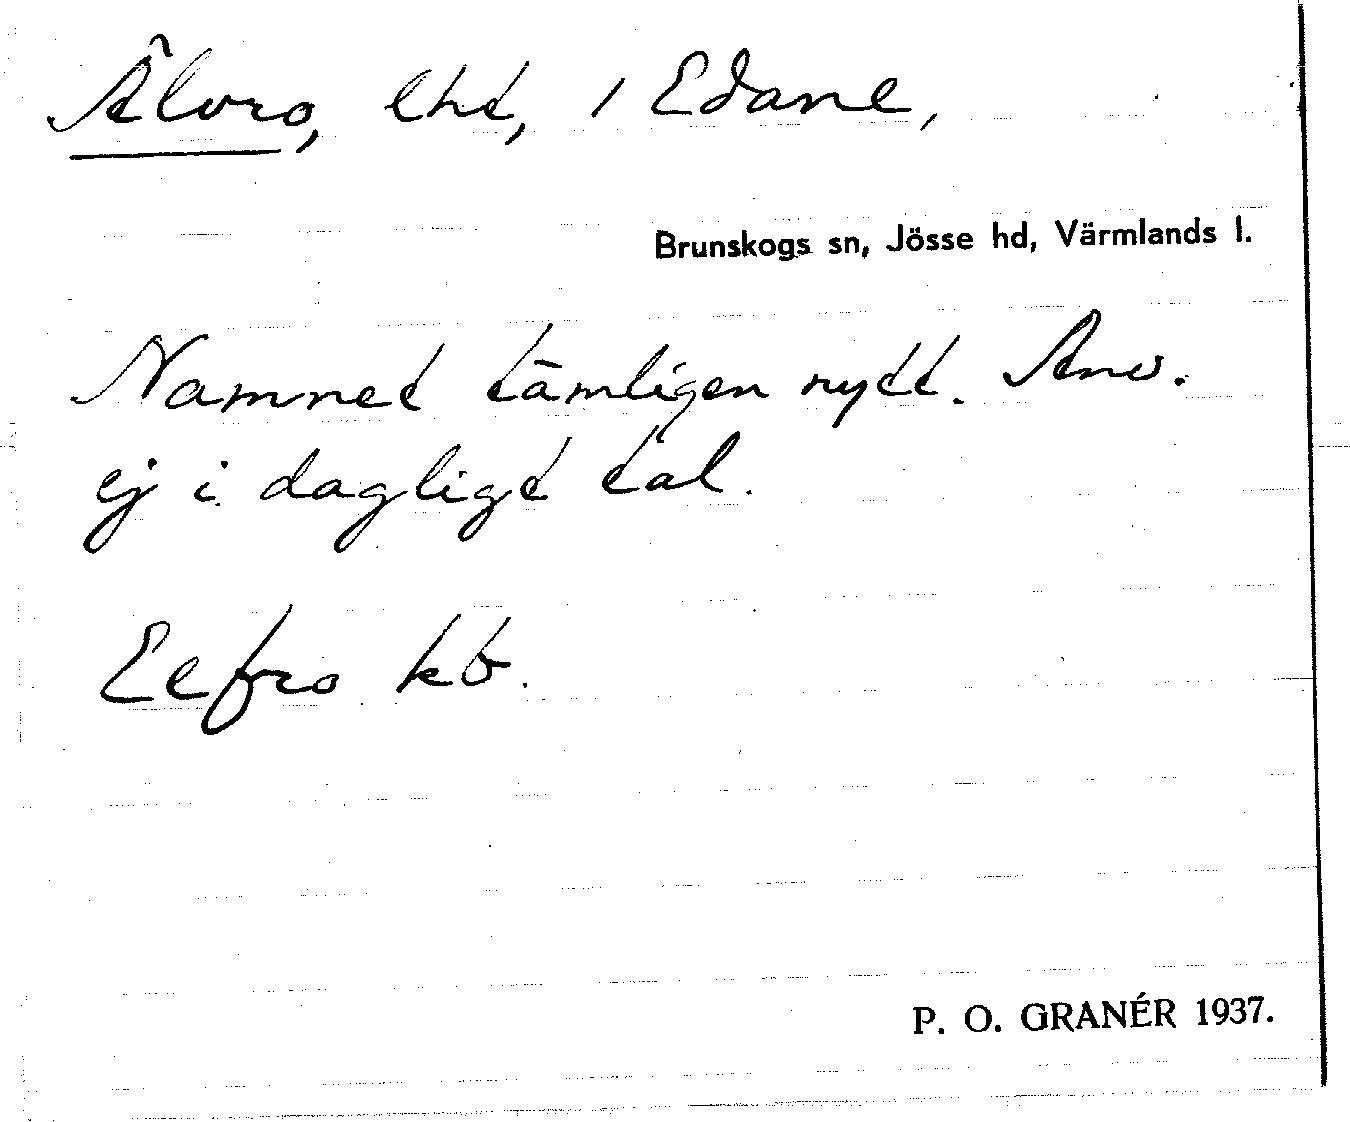 Älvro, lht, 1 Edane,
Brunskogs sn, Jösse hd, Värmlands l.
Namnet tämligen nytt. Anv.
ej i dagligt tal.
Eefro kb.
P. O. GRANÉR 1937.